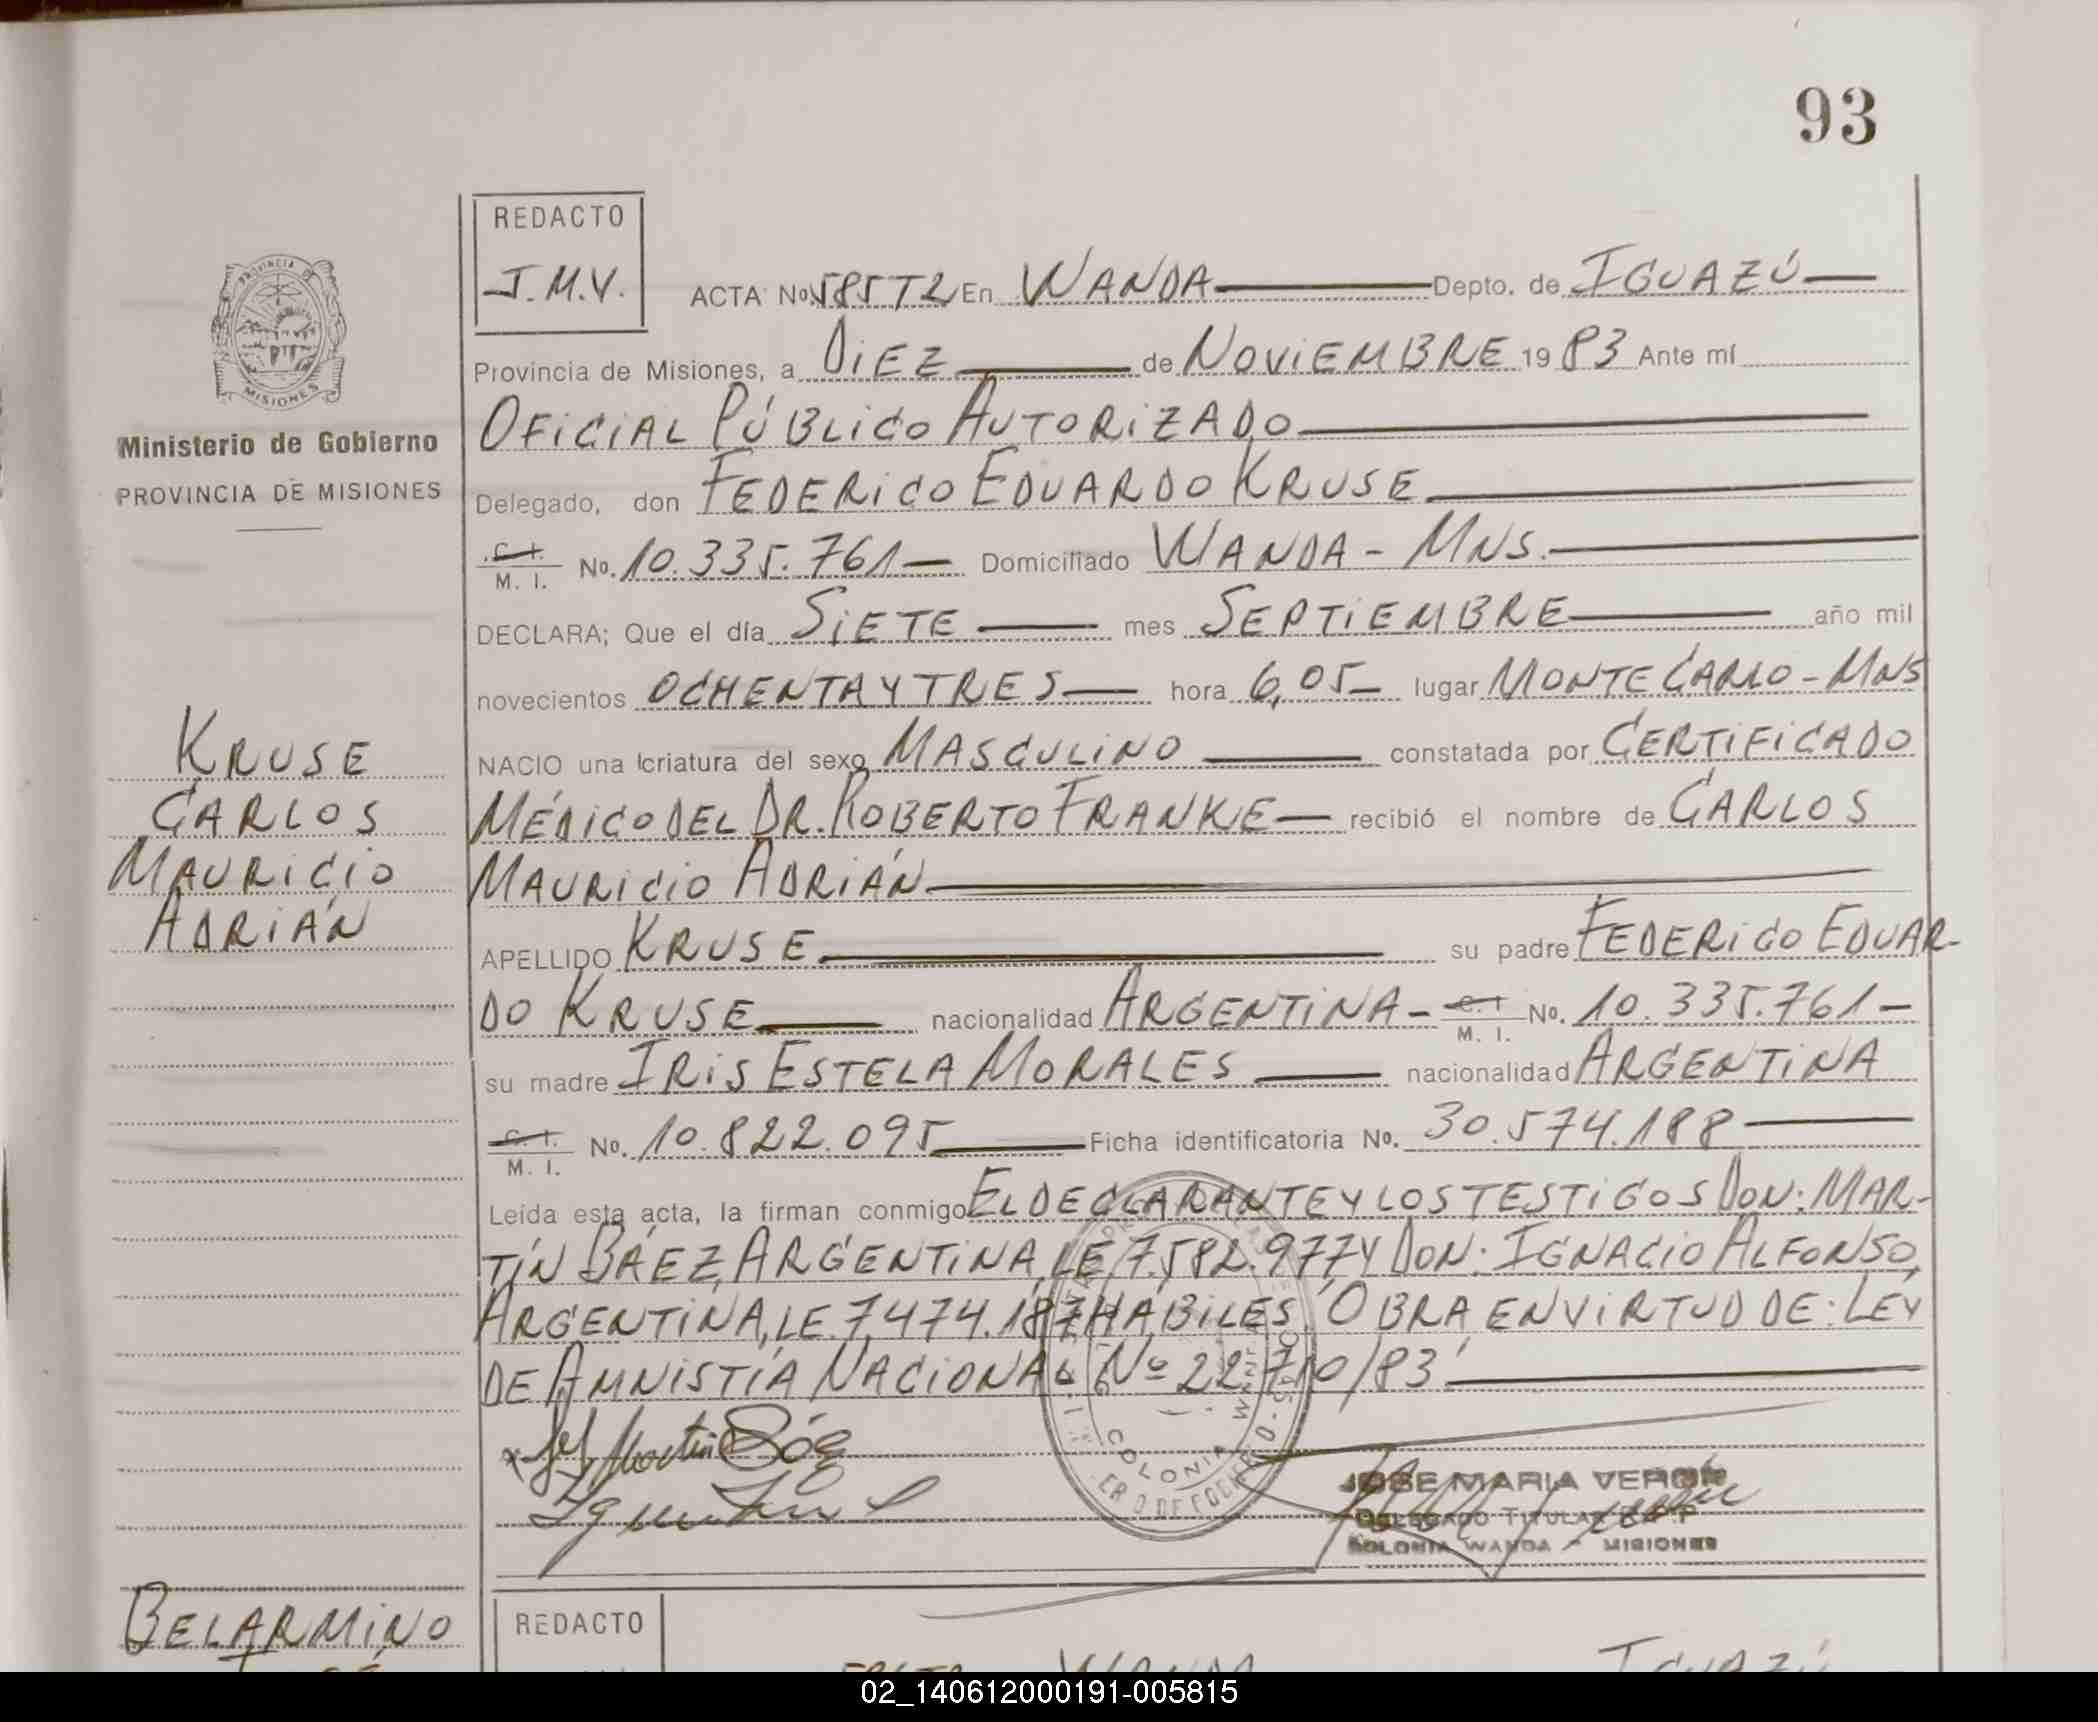 93
REDACTO
J.M.V.
ACTA No. 585T2 En WANDA Depto. de IGUAZÚ
Provincia de Misiones, a DIEZ de NOVIEMBRE 1983 Ante mí
OFICIAL PÚBLICO AUTORIZADO
Delegado, don FEDERICO EDUARDO KRUSE
C. I. M. I. No. 10.335.761 Domiciliado WANDA - MNS.
DECLARA; Que el día SIETE mes SEPTIEMBRE año mil
novecientos OCHENTA Y TRES hora 6,05 lugar MONTECARLO - MNS
NACIO una criatura del sexo MASCULINO constatada por CERTIFICADO
MÉDICO DEL DR. ROBERTO FRANKE recibió el nombre de CARLOS
MAURICIO ADRIÁN
APELLIDO KRUSE su padre FEDERICO EDUAR-
DO KRUSE nacionalidad ARGENTINA - C. I. M. I. No. 10.335.761 -
su madre IRIS ESTELA MORALES nacionalidad ARGENTINA
C. I. M. I. No. 10.822.095 Ficha identificatoria No. 30.574.188
Leída esta acta, la firman conmigo EL DECLARANTE Y LOS TESTIGOS DON: MAR-
TÍN BÁEZ, ARGENTINA, LE. 7.582.977 Y DON: IGNACIO ALFONSO,
ARGENTINA, LE. 7.474.187 HÁBILES, OBRA EN VIRTUD DE: LEY
DE AMNISTÍA NACIONAL Nº 22.710/83
COLONIA WANDA
JOSE MARIA VERÓN
DELEGADO TITULAR R.P.P
COLONIA WANDA - MISIONES
PROVINCIA DE
MISIONES
Ministerio de Gobierno
PROVINCIA DE MISIONES
KRUSE
CARLOS
MAURICIO
ADRIÁN
BELARMINO
REDACTO
WANDA IGUAZÚ
02_140612000191-005815